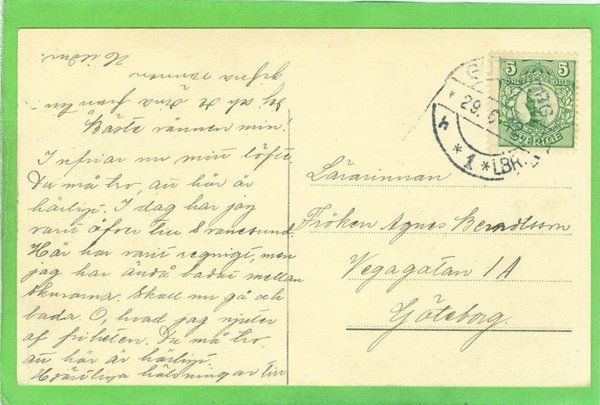 Bäste vännen min!
Infriar nu mitt löfte.
Du må tro, att här är
härligt. I dag har jag
varit över till Svanesund.
Här har varit regnigt men
jag har ändå badat mellan
skurarna. Skall nu gå och
bada. O, hvad jag njuter
af friheten. Du må tro,
att här är härligt.
Hjärtliga hälsningar till
dig och de dina från din
gifna vännen
5 5
SVERIGE
29.6
* 1 * LBR.
Lärarinnan
Fröken Agnes Berndtsson
Vegagatan 1 A
Göteborg.